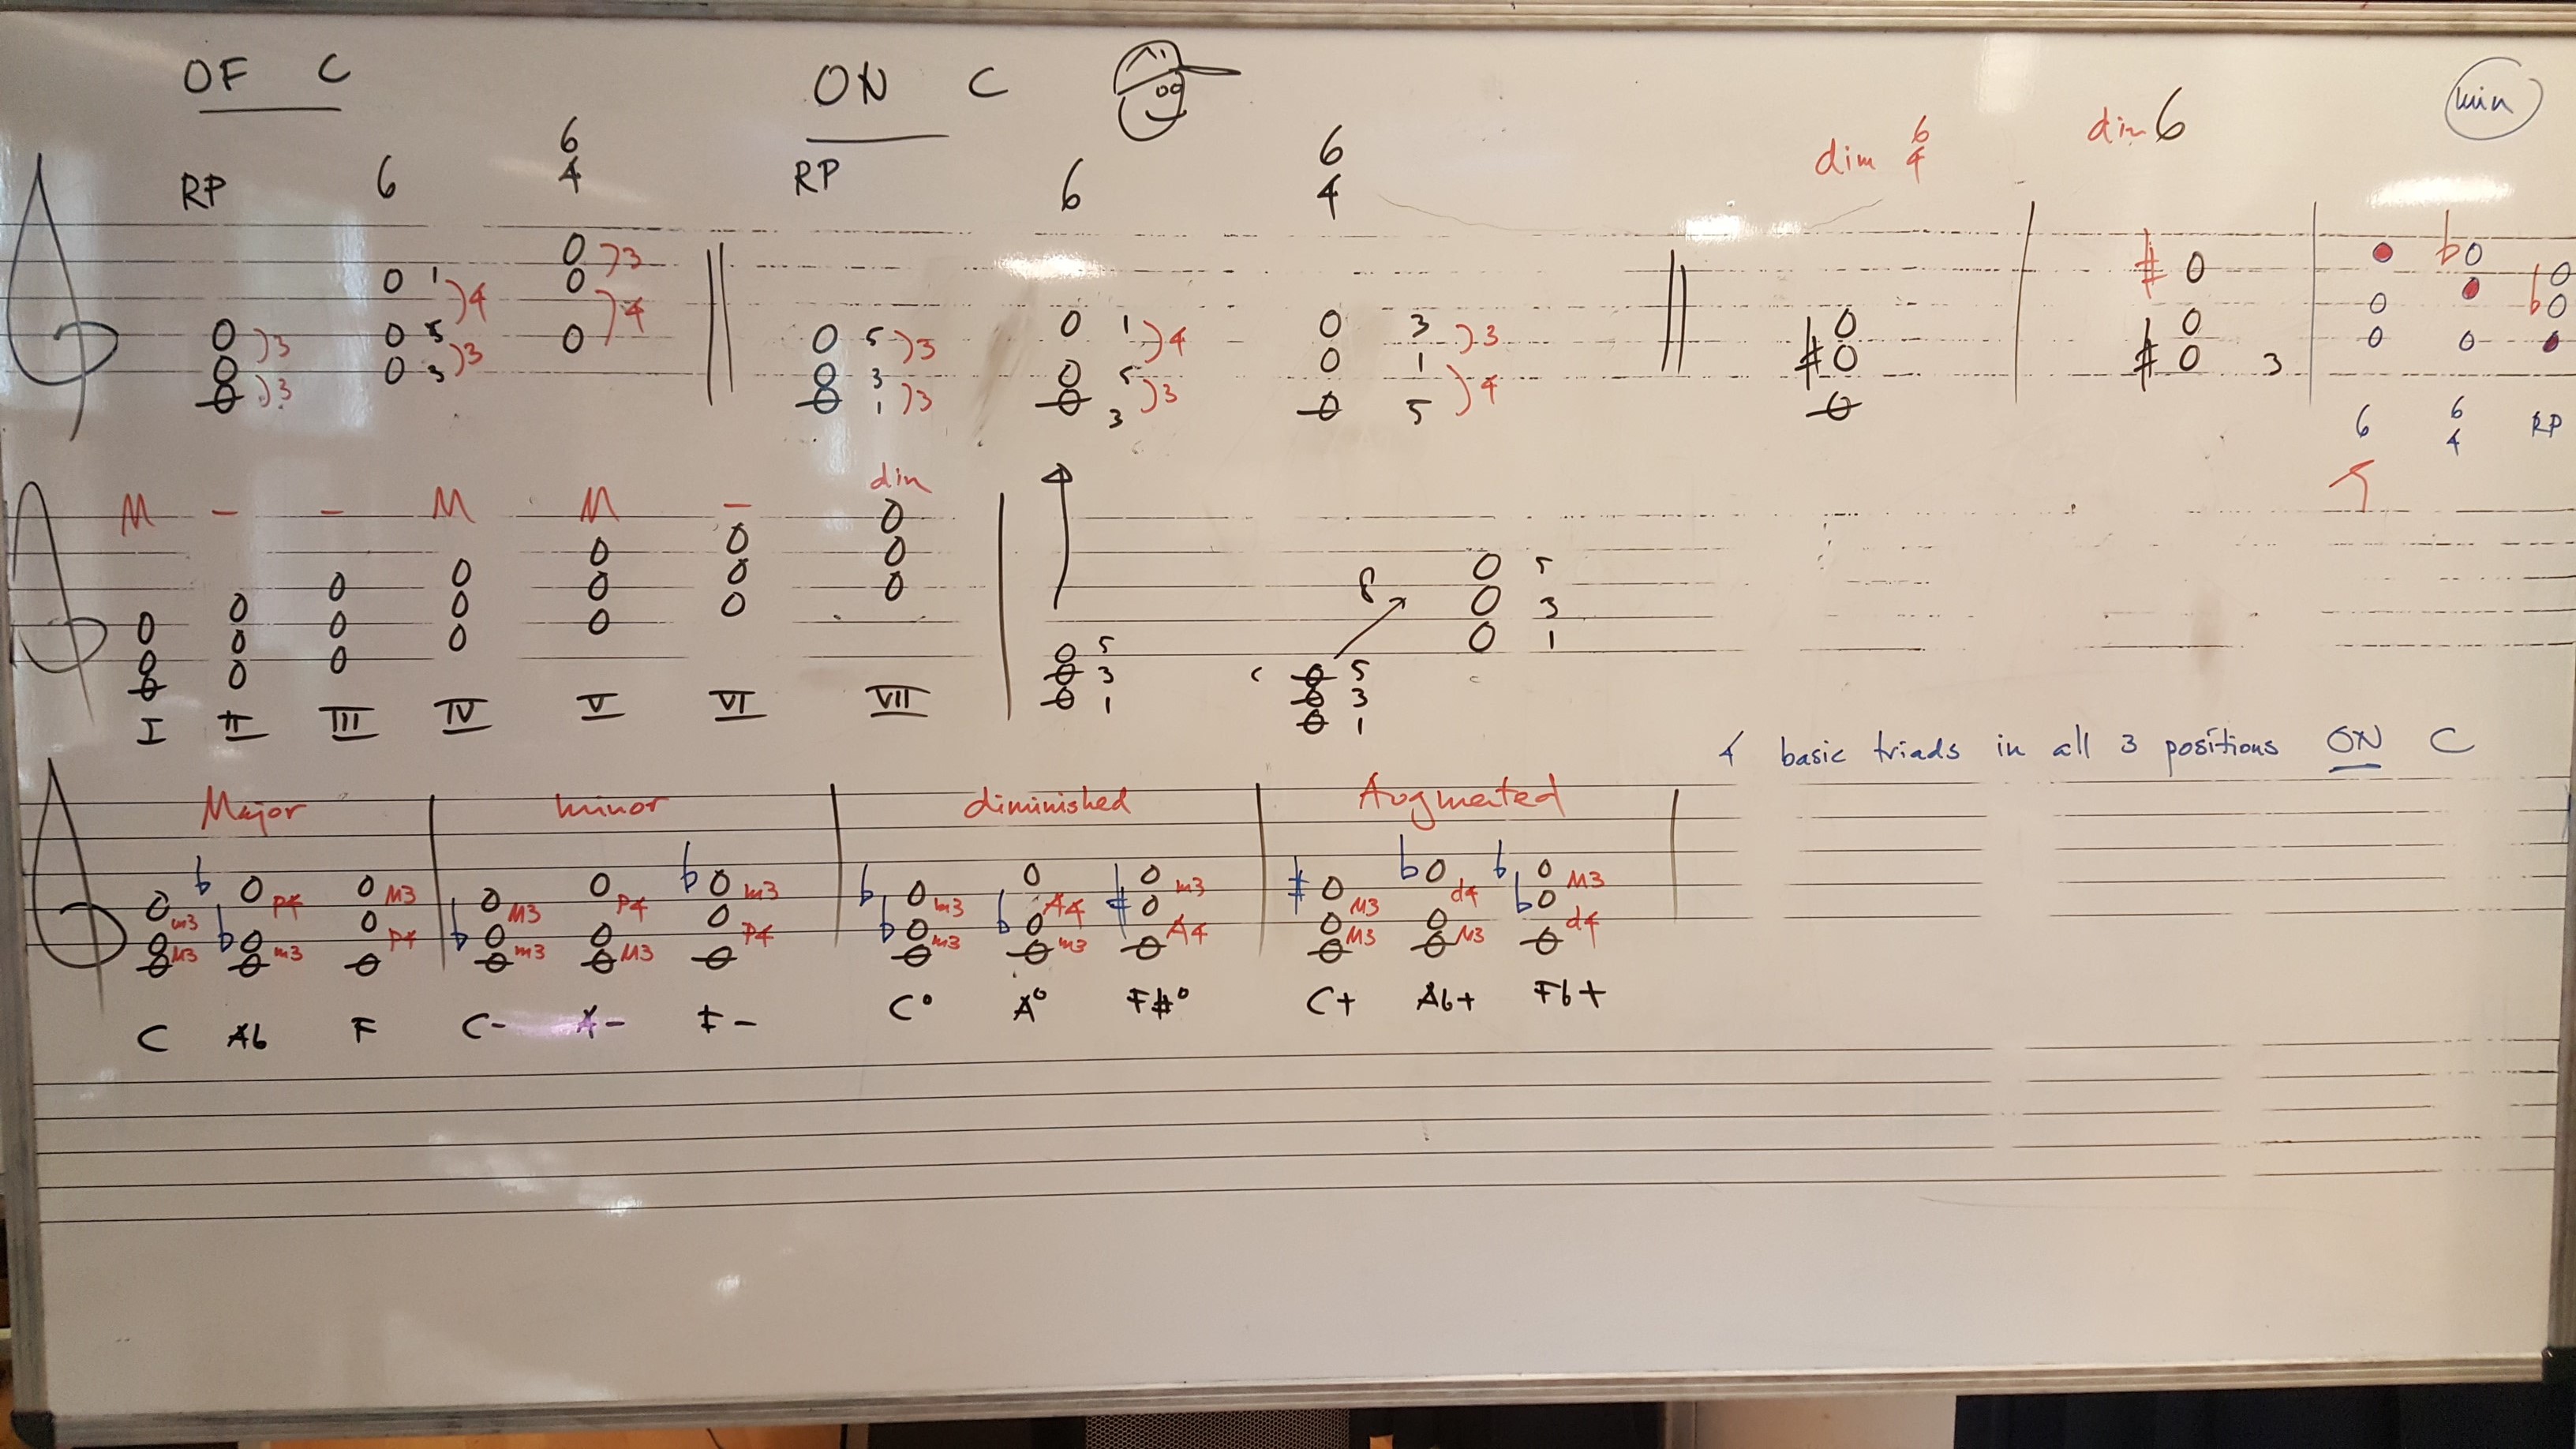 OF C ON C
dim 6 min
6 6 dim 6
RP 6 4 RP 6 4 4
3
1 4
5 3 4
3 3
3
5 3 1 4 3 3
3 3 5 3 1 4
1 3 5
# # # 3
b b
6 6 RP
4
M - - M M - dim
I II III IV V VI VII
5
3
1
C 5
3
1
8
5
3
1
4 basic triads in all 3 positions ON C
Major minor diminished Augmented
m3 M3 b P4 b m3 M3 P4
b M3 m3 P4 M3 b m3 P4
b m3 b m3 b A4 m3 # m3 A4
# M3 M3 b d4 M3 b b M3 d4
C Ab F C- A- F- C° A° F#° C+ Ab+ Fb+